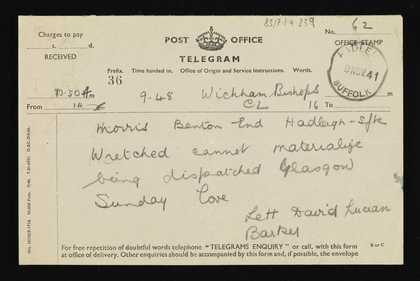 8317.1.4 239
Charges to pay
s. d.
RECEIVED
POST OFFICE
No. 62
OFFICE STAMP
TELEGRAM
Prefix. Time handed in. Office of Origin and Service Instructions. Words.
36
41
SUFFOLK
10.30 A m
9.48 Wickham Bishops
CL 16 To m
From
Morris Benton-End Hadleigh-Sfk
Wretched cannot materialize
being dispatched Glasgow
Sunday Love
Lett David Lucian
Barker
For free repetition of doubtful words telephone "TELEGRAMS ENQUIRY" or call, with this form
at office of delivery. Other enquiries should be accompanied by this form and, if possible, the envelope
B or C